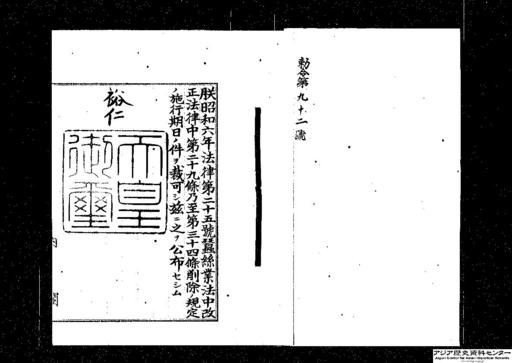 勅令第九十二號
朕昭和六年法律第二十五號蠶絲業法中改
正法律中第二十九條乃至第三十四條削除ノ規定
ノ施行期日ノ件ヲ裁可シ茲ニ之ヲ公布セシム
裕仁
天皇
御璽
内閣
アジア歴史資料センター
Japan Center for Asian Historical Records